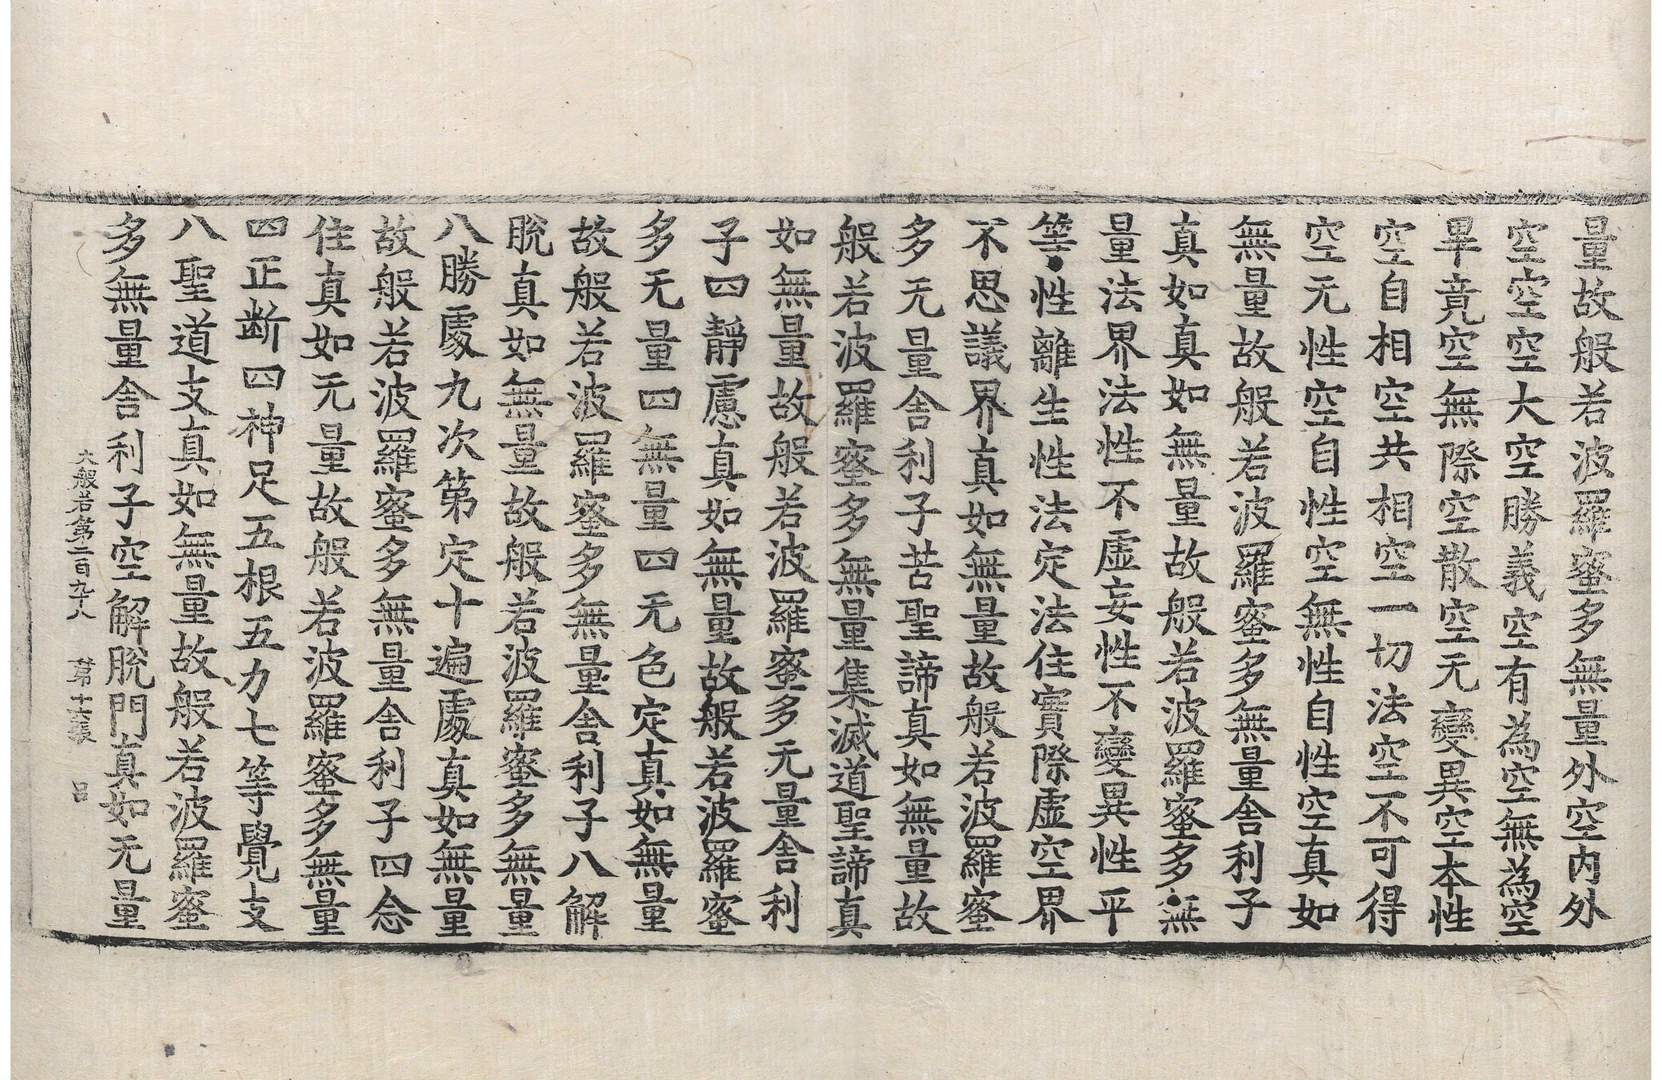 量故般若波羅蜜多無量外空內外
空空空大空勝義空有為空無為空
畢竟空無際空散空无變異空本性
空自相空共相空一切法空不可得
空无性空自性空無性自性空真如
無量故般若波羅蜜多無量舍利子
真如真如無量故般若波羅蜜多無
量法界法性不虛妄性不變異性平
等性離生性法定法住實際虛空界
不思議界真如無量故般若波羅蜜
多无量舍利子苦聖諦真如無量故
般若波羅蜜多無量集滅道聖諦真
如無量故般若波羅蜜多无量舍利
子四靜慮真如無量故般若波羅蜜
多无量四無量四无色定真如無量
故般若波羅蜜多無量舍利子八解
脫真如無量故般若波羅蜜多無量
八勝處九次第定十遍處真如無量
故般若波羅蜜多無量舍利子四念
住真如无量故般若波羅蜜多無量
四正断四神足五根五力七等覺支
八聖道支真如無量故般若波羅蜜
多無量舍利子空解脫門真如无量
大般若第二百九十八 第十五張 呂